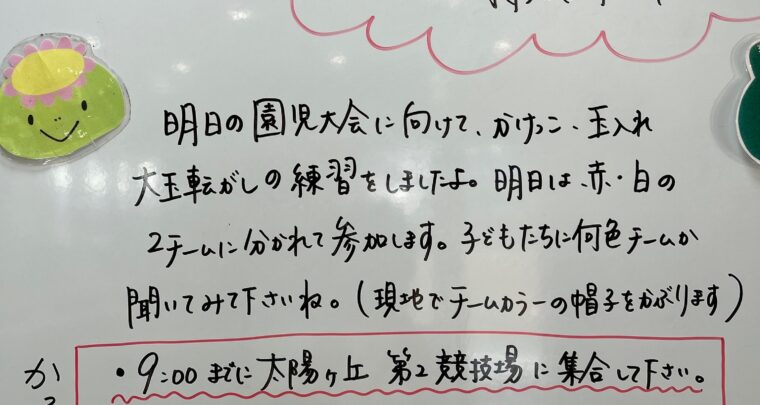 明日の園児大会に向けて、かけっこ・玉入れ
大玉転がしの練習をしましたよ。明日は、赤・白の
2チームに分かれて参加します。子どもたちに何色チームか
聞いてみて下さいね。(現地でチームカラーの帽子をかぶります)
・9:00までに太陽ヶ丘 第2競技場に集合して下さい。
か